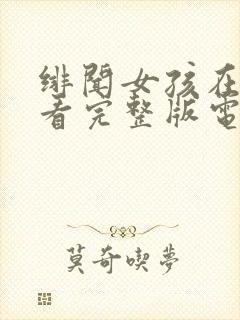 緋聞女孩在
看完整版電
莫奇喫夢